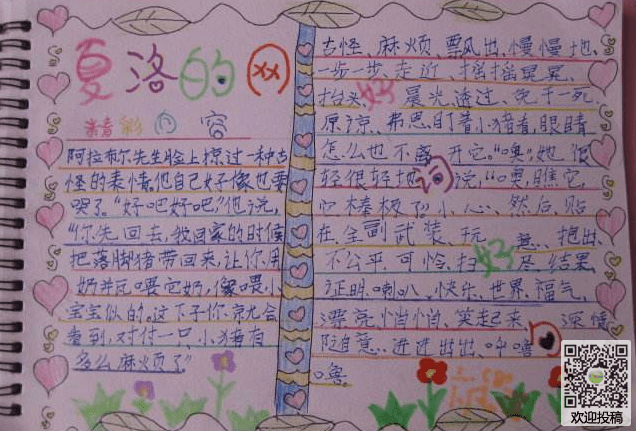 夏洛的网
精彩内容
阿拉布尔先生脸上掠过一种古
怪的表情。他自己好像也要
哭了。"好吧好吧,"他说,
"你先回去,我回家的时候
把落脚猪带回来,让你用
奶并瓦喂它奶,像喂小
宝宝似的。这下子你就会
看到,对付一只小猪有
多么麻烦了"
古怪、麻烦、飘出、慢慢地、
一步一步、走近、摇摇晃晃、
抬头、好晨光透过、免于一死、
原谅、弗恩盯着小猪看,眼睛
怎么也不离开它。"噢,"她很
轻很轻地词说,"噢,瞧它,
它棒极了。小心、然后、贴
在、全副武装、玩意、抱出、
不公平、可怜、扫好尽、结果、
证明、喇叭、快乐、世界、福气、
漂亮、悄悄、笑起来、深情、
随意、进进出出、呼噜
噜。
欢迎投稿